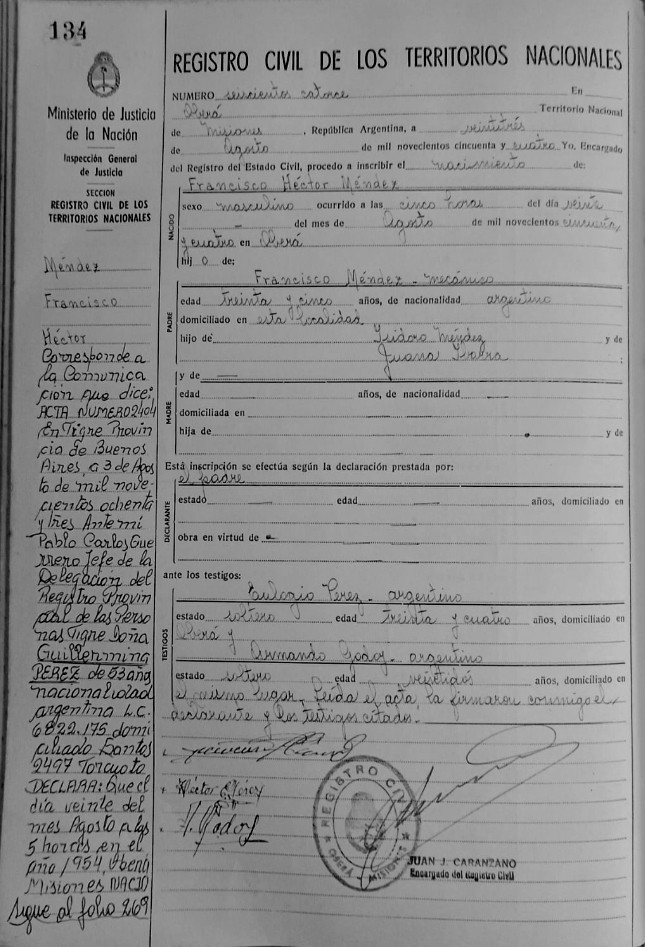 134
Ministerio de Justicia
de la Nación
Inspección General
de Justicia
SECCION
REGISTRO CIVIL DE LOS
TERRITORIOS NACIONALES
Méndez
Francisco
Héctor
Corresponde a
la Comunica
cion que dice:
ACTA NUMERO 2404
En Tigre Provin
cia de Buenos
Aires, a 3 de Agos
to de mil nove-
cientos ochenta
y tres Ante mi
Pablo Carlos Gue
rrero Jefe de la
Delegacion del
Registro Provin
cial de las Perso
nas Tigre Doña
Guillermina
PEREZ de 53 años
nacionalidad
argentina L.C.
6.822.175 domi
ciliado Dantos
2497 Torcuato
DECLARA: Que el
día veinte del
mes Agosto a las
5 horas en el
año 1954, Oberá
Misiones NACIO
sigue al folio 269
REGISTRO CIVIL DE LOS TERRITORIOS NACIONALES
NUMERO seiscientos catorce En
Oberá Territorio Nacional
de Misiones, República Argentina, a veintitrés
de Agosto de mil novecientos cincuenta y cuatro Yo, Encargado
del Registro del Estado Civil, procedo a inscribir el nacimiento de:
NACIDO
Francisco Héctor Méndez
sexo masculino ocurrido a las cinco horas del día veinte
del mes de Agosto de mil novecientos cincuenta
y cuatro en Oberá
hij o de:
PADRE
Francisco Méndez - mecánico
edad treinta y cinco años, de nacionalidad argentino
domiciliado en esta localidad
hijo de Isidoro Méndez y de
Juana ;
MADRE
y de —
edad años, de nacionalidad —
domiciliada en
hija de y de
Está inscripción se efectúa según la declaración prestada por:
DECLARANTE
el padre
estado — edad — años, domiciliado en
obra en virtud de -
ante los testigos:
TESTIGOS
Eulogio Perez - argentino
estado soltero edad treinta y cuatro años, domiciliado en
Oberá y
Armando Godoy - argentino
estado soltero edad veintidos años, domiciliado en
el mismo lugar. Leída el acta, la firmaron conmigo el
declarante y los testigos citados.
REGISTRO CIVIL
OBERA
MISIONES
JUAN J. CARANZANO
Encargado del Registro Civil